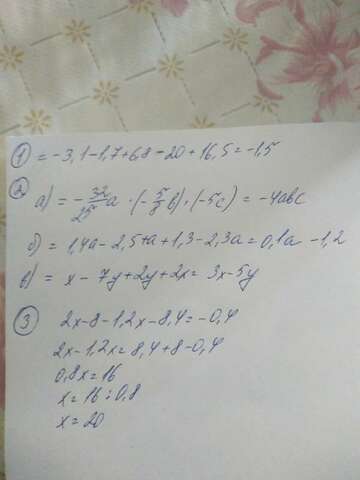 ① = -3,1-1,7+6,8-20+16,5=-1,5
② а) = -32/25 a · (-5/8 b) · (-5c) = -4abc
б) = 1,4a - 2,5+a+1,3-2,3a=0,1a -1,2
в) = x - 7y+2y+2x= 3x-5y
③ 2x-8-1,2x-8,4=-0,4
2x-1,2x=8,4+8-0,4
0,8x=16
x=16:0,8
x=20